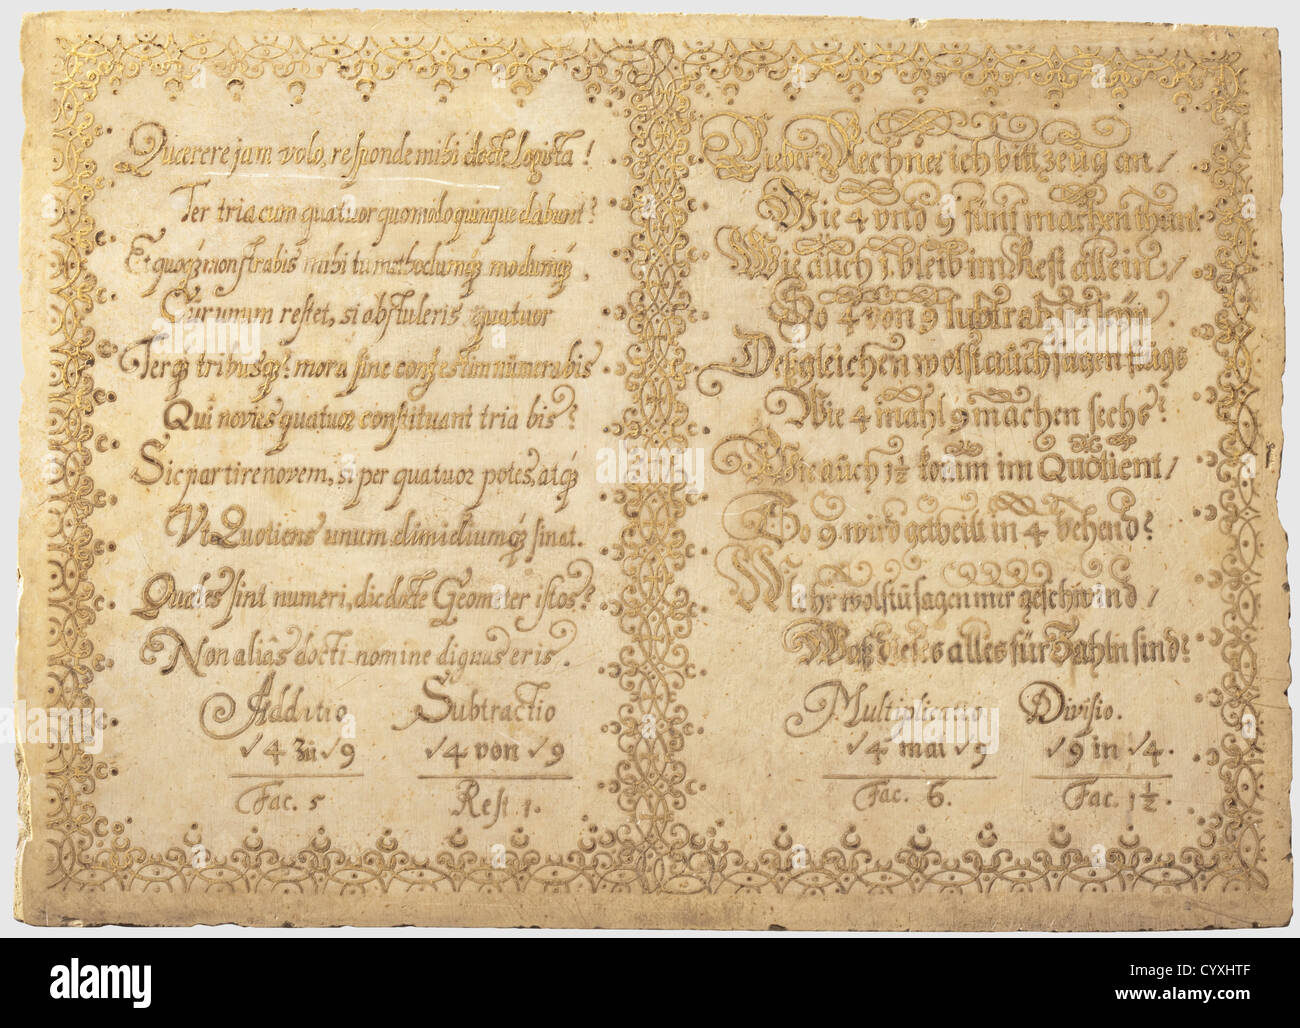 Quærere jam volo, responde mihi docte Logista!
Ter tria cum quatuor quomodo quinque dabunt?
Et quoqȝ monstrabis mihi tu methodumqȝ modumqȝ,
Cur unum restet, si obstuleris quatuor
Terqȝ tribusqȝ: mora sine conge
Qui novies quatuor constituant tria bis?
Sic partire novem, si per quatuor potes, atqȝ
Ut Quotiens unum dimidiumqȝ sinat.
Quales sint numeri, dic docte Geometer istos?
Non aliâs docti nomine dignus eris.
Additio Subtractio
√4 zu √9 √4 von √9
Fac. 5 Rest 1.
Lieber Rechner ich bitt zeug an/
Wie 4 vnd 9 fünf machen
Wie auch 1. bleib im Rest allein/
So 4 von 9 subtrah
Deßgleichen wolst auch sagen flugs
Wie 4 mahl 9 machen sechs?
Wie auch 1½ komm im Quotient/
So 9 wird getheilt in 4 behend?
Mehr wolstu sagen mir geschwind/
Waß dieses alles für Zahln sind?
Multiplicatio Divisio.
√4 mal √9 √9 in √4.
Fac. 6. Fac. 1½.
alamy
Image ID: CYXHTF
www.alamy.com